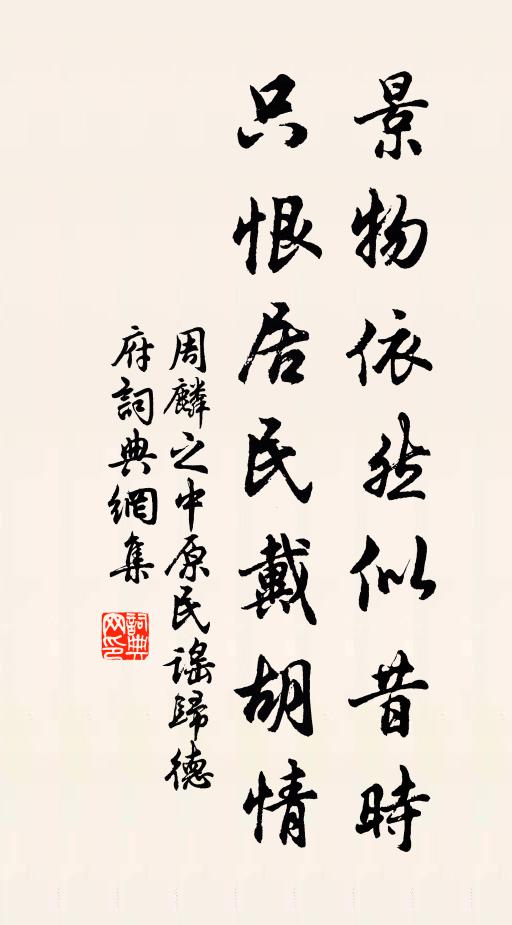 景物依然似昔時
只恨居民戴胡情
周麟之中原民謠歸德
府詞典網集
詞典
网印